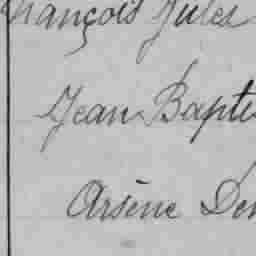 François Jules
Jean Bapti
Arsène Den